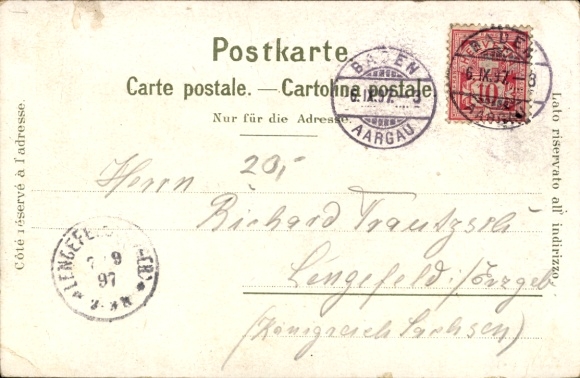 Postkarte.
Carte postale. — Cartolina postale.
Nur für die Adresse.
Côté réservé à l'adresse.
Lato riservato all' indirizzo.
BADEN
6.IX.97. 8
AARGAU
BADEN
6.IX.97. 8
AARGAU
10
20,-
Herrn
Richard Trautzsch
Lengefeld i/Erzgeb
(Königreich Sachsen)
97